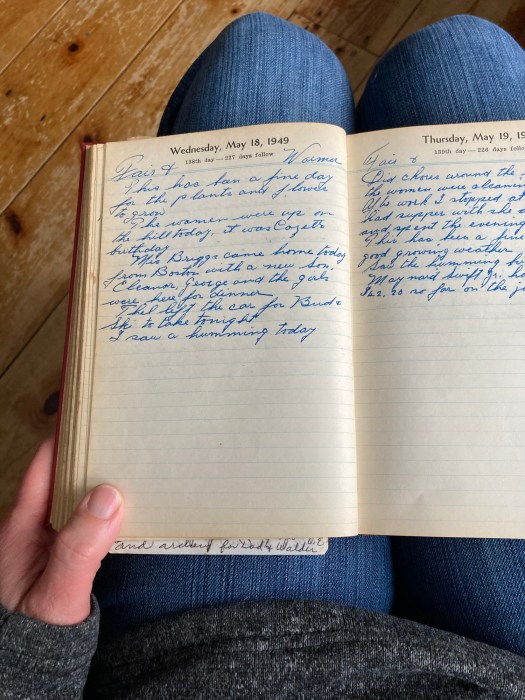 Wednesday, May 18, 1949
138th day — 227 days follow
Fair & Warmer
This has ben a fine day
for the plants and flowers
to grow
The women were up on
the hill today, it was Cozets
birthday
Mrs Briggs came home today
from Boston with a new son.
Eleanor, George and the girls
were here for dinner
Phil left the car for Bud &
Ski to take tonight
I saw a humming today
and accident for Dad & Walder
Thursday, May 19, 19
139th day — 226 days follo
Fair &
Did chores around the
the women were cleanin
the work I stopped at
had supper with she a
and spent the evening
This has been a fine
good growing weather
Saw the humming bi
May naid Swift Jr.
so far on the